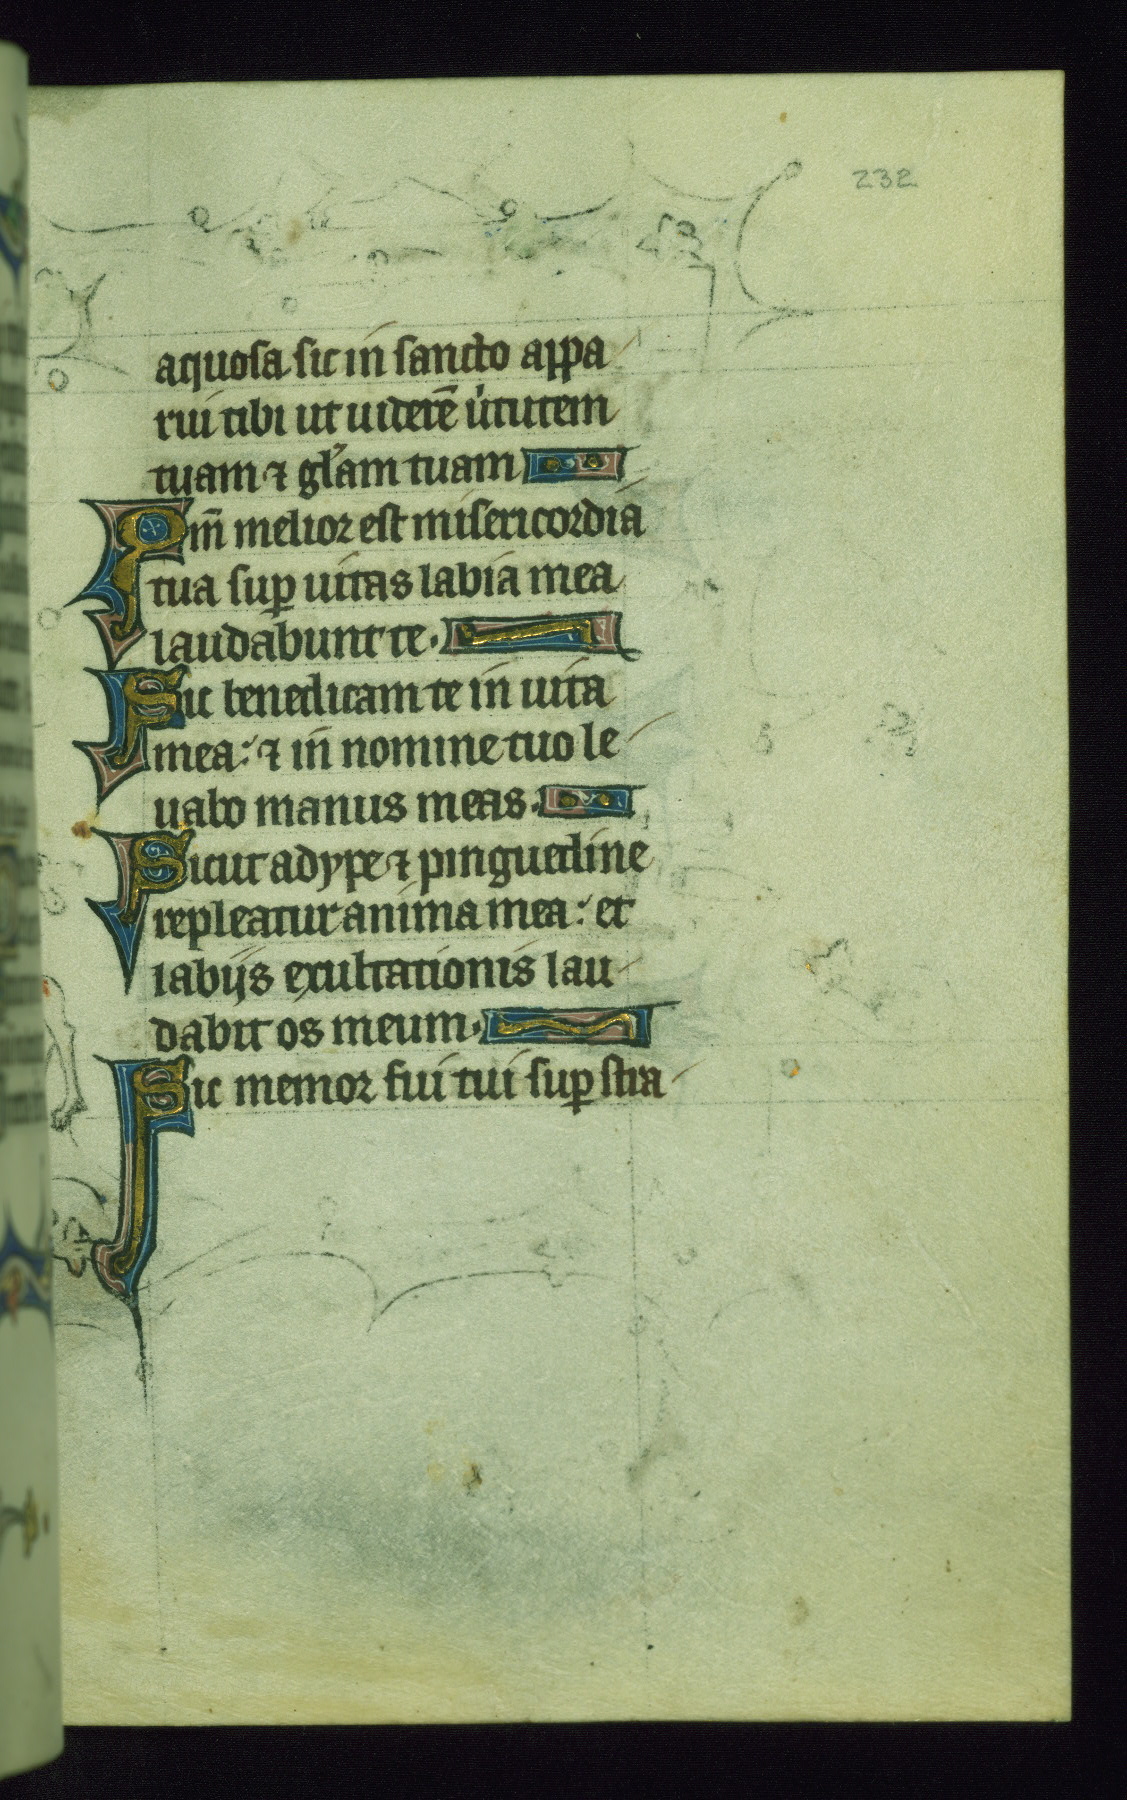 232
aquosa sic in sancto appa
rui tibi ut uiderē u᷑tutem
tuam ⁊ gl̄am tuam
Qm̄ melior est misericordia
tua suꝑ uitas labia mea
laudabunt te.
Sic benedicam te in uita
mea: ⁊ in nomine tuo le
uabo manus meas.
Sicut adype ⁊ pinguedine
repleatur anima mea: et
labijs exultationis lau
dabit os meum.
Sic memor fui tui suꝑ stra